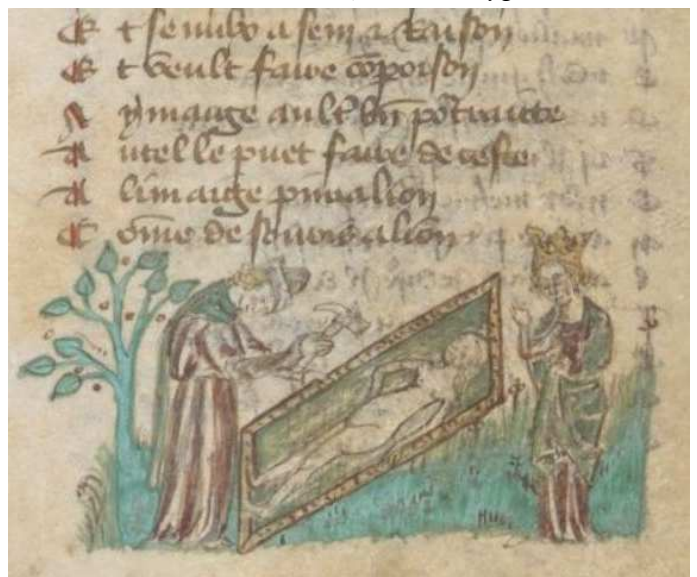 et se nulz a sem a raison
et veult faire cōpoison
dymaige ault bn̄ potraitte
autel le puet faire de ceste
a limaige pimalion
cōme de souris a lion